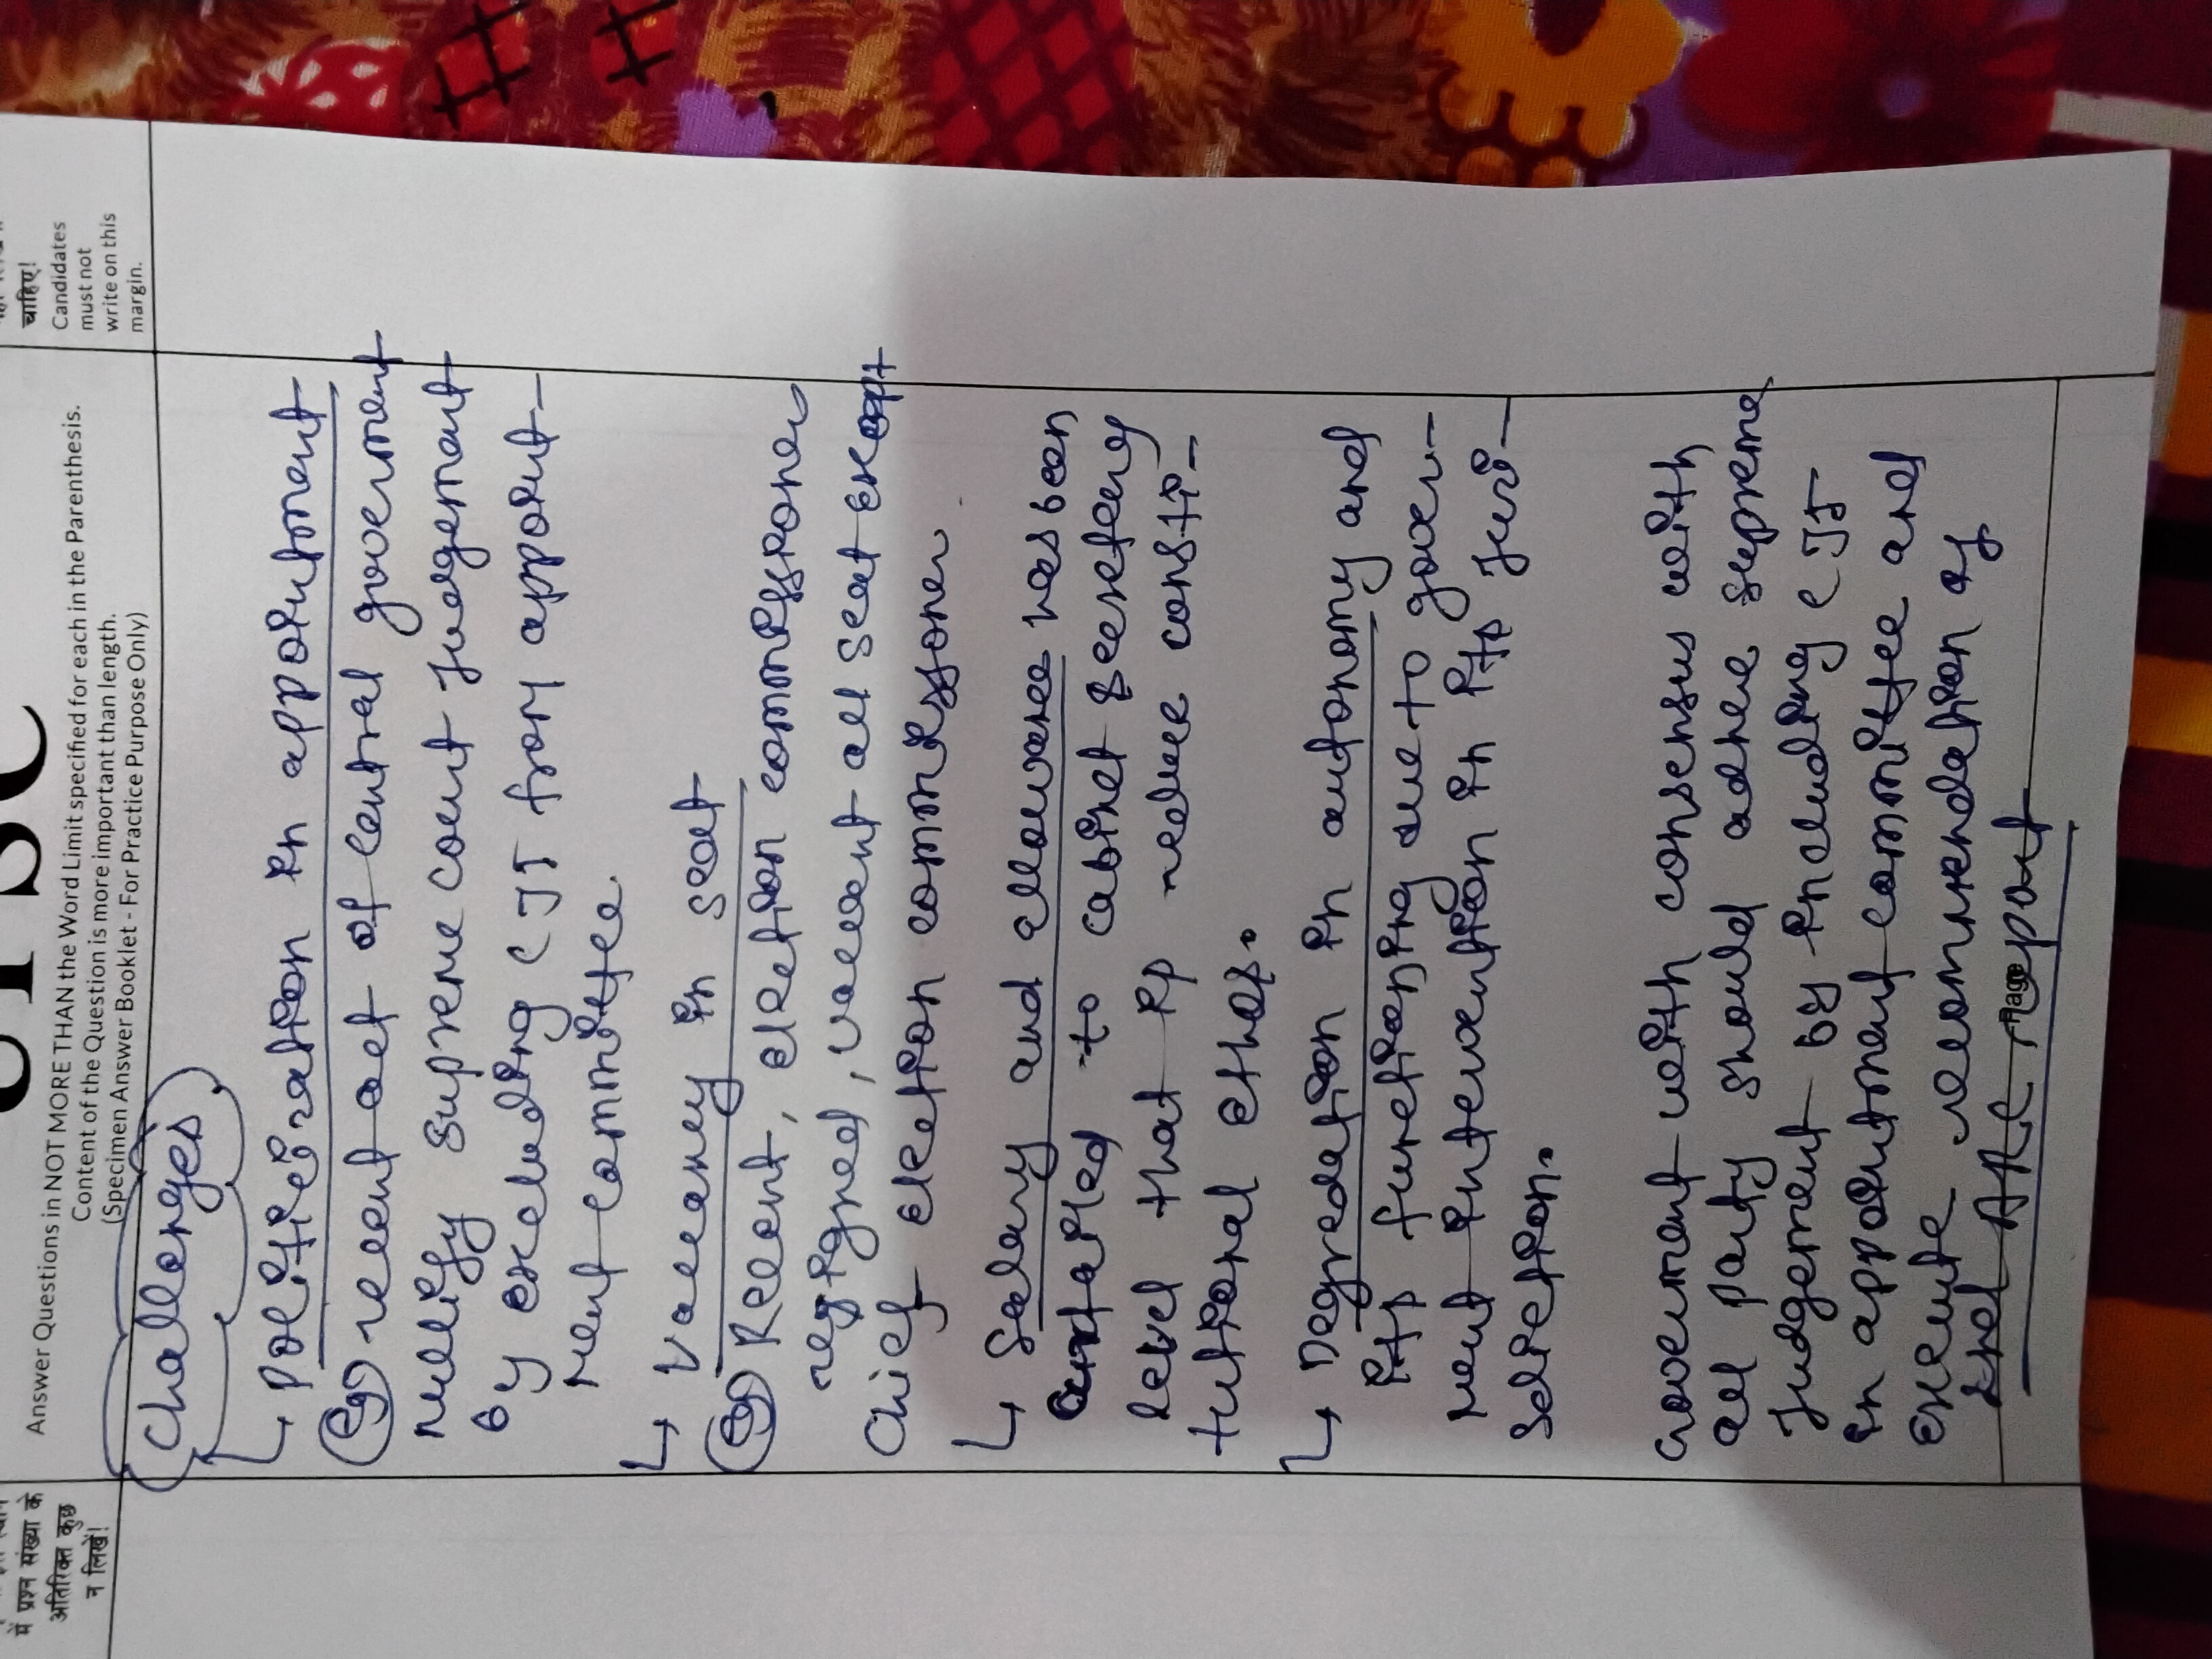 UPSC
Answer Questions in NOT MORE THAN the Word Limit specified for each in the Parenthesis.
Content of the Question is more important than length.
(Specimen Answer Booklet - For Practice Purpose Only)
में प्रश्न संख्या के
अतिरिक्त कुछ
न लिखें!
चाहिए!
Candidates
must not
write on this
margin.
Challenges
↳ politicization in appointment
eg recent act of central goverment
nullify supreme court judgement
by excluding CJI from appoint-
ment committee.
↳ vacancy in seat
eg Recent, election commissioner
resigned, vacent all seat except
Chief election commissioner.
↳ Salary and allowance has been
curtailed to cabinet secretery
level that is reduce consti-
tutional ethos.
↳ Degredation in autonomy and
its functioning due to govern-
ment intervention in its juri-
sdiction.
Goverment with consensus with
all party should adhere supreme
judgement by including CJI
in appointment committee and
execute recommendation of
2nd ARC report
Page